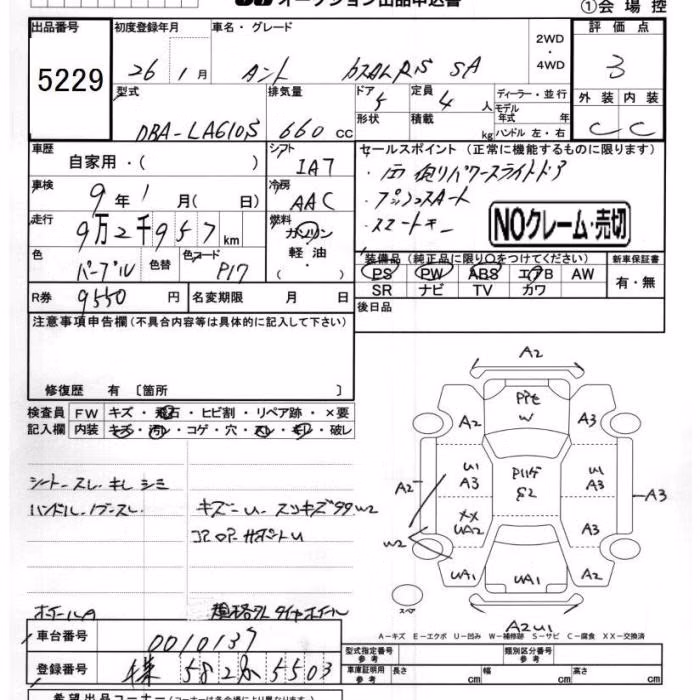 オークション出品申込書
①会場控
出品番号 5229
初度登録年月 26年 1月
車名・グレード タント カスタムRS SA
2WD・4WD
評価点 3
型式 DBA-LA610S
排気量 660 cc
ドア 5
形状
定員 4人
積載 kg
ディーラー・並行
モデル年式 年
ハンドル 左・右
外装 C
内装 C
車歴 自家用・( )
シフト IA7
セールスポイント (正常に機能するものに限ります)
・両側パワースライドドア
・プッシュスタート
・スマートキー
NOクレーム・売切
車検 9年 1月 ( 日)
冷房 AAC
走行 9万2千957km
燃料 ガソリン・軽油・( )
色 パープル
色替
色コード P17
装備品 (純正品に限り○をつけてください)
PS PW ABS エアB AW
SR ナビ TV カワ
新車保証書 有・無
R券 9550円
名変期限 月 日
後日品
注意事項申告欄(不具合内容等は具体的に記入して下さい)
修復歴 有 〔箇所 〕
検査員記入欄
FW キズ・飛石・ヒビ割・リペア跡・×要
内装 キズ・汚レ・コゲ・穴・スレ・キレ・破レ
シート スレ キレ シミ
ハンドル ノブ スレ
キズ・U・スリキズ99W2
コアロアサポートU
ホイールA
規格外タイヤホイール
A2
ピt
W
A2 A3
U1 A3
ルーフ
E2
U1 A3
A2 A3
W2
XX UA2
A3
UA1 UA1 A2
スペア
A2U1
A-キズ E-エクボ U-凹み W-補修跡 S-サビ C-腐食 XX-交換済
車台番号 0010137
登録番号 582 5503
型式指定番号 参考
類別区分番号 参考
車庫証明用 参考
長さ cm
幅 cm
高さ cm
希望出品コーナー(コーナーは各会場により異なります)